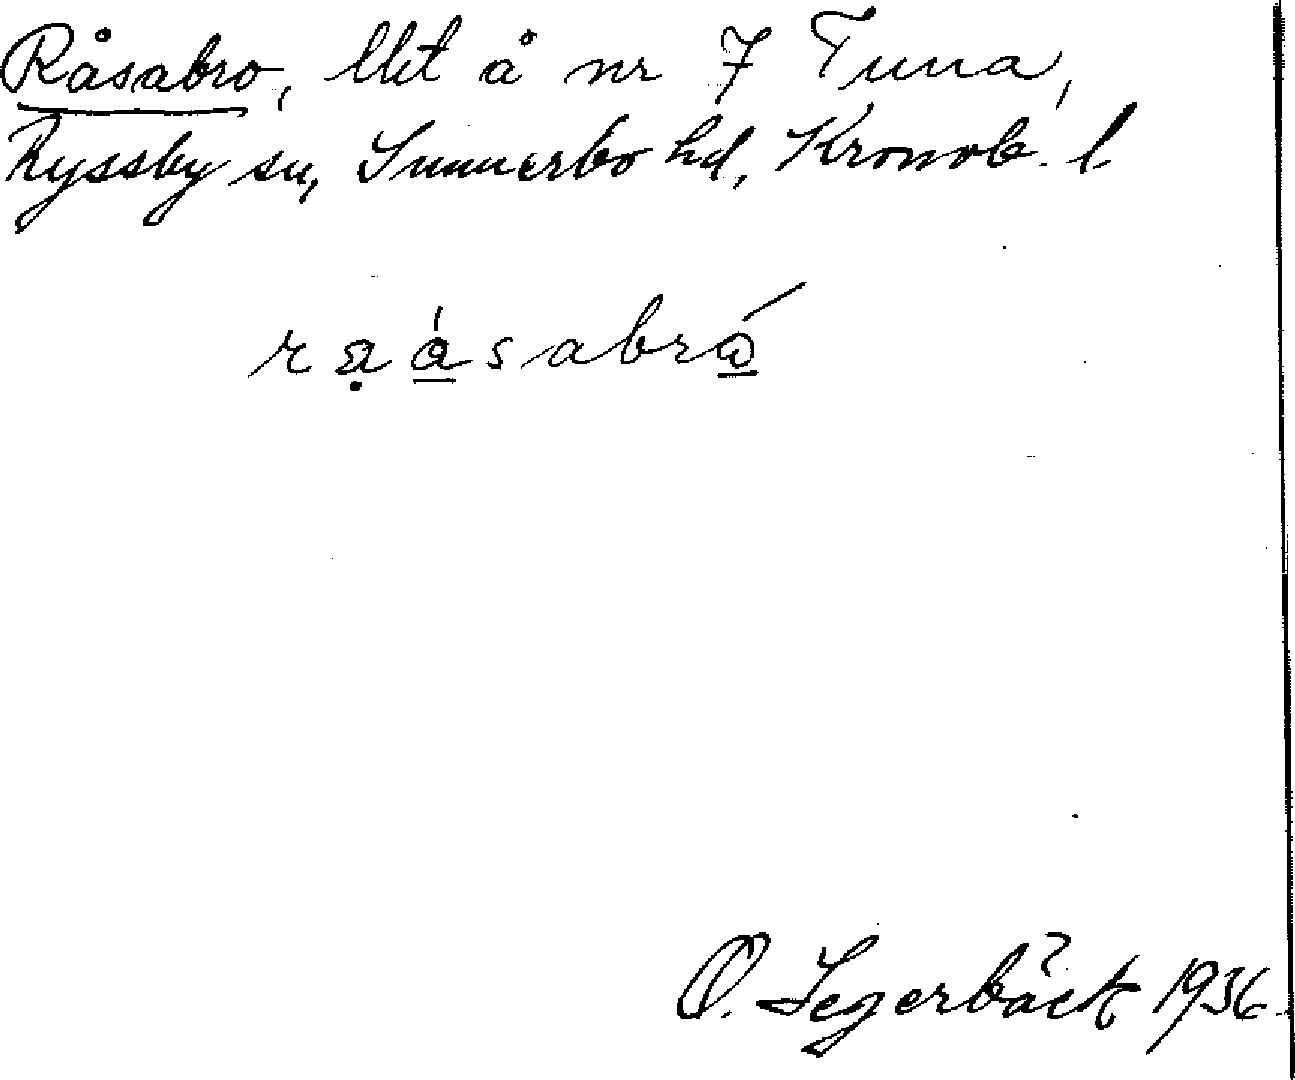 Råsabro, llht å nr 7 Tuna,
Ryssby sn, Sunnerbo hd, Kronob. l.
O. Segerbäck 1936